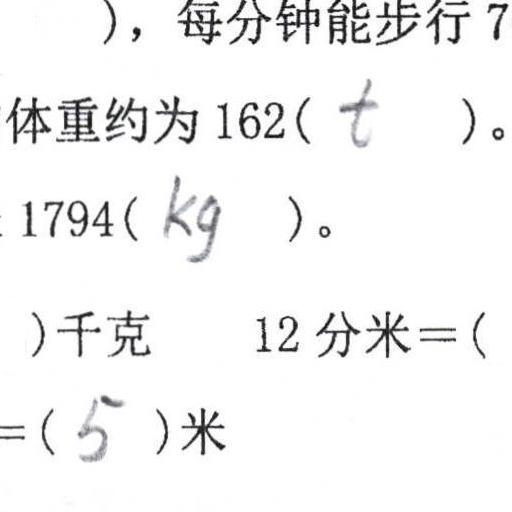 ），每分钟能步行 7
体重约为 162( t )。
1794( kg )。
)千克 12 分米=(
=( 5 )米